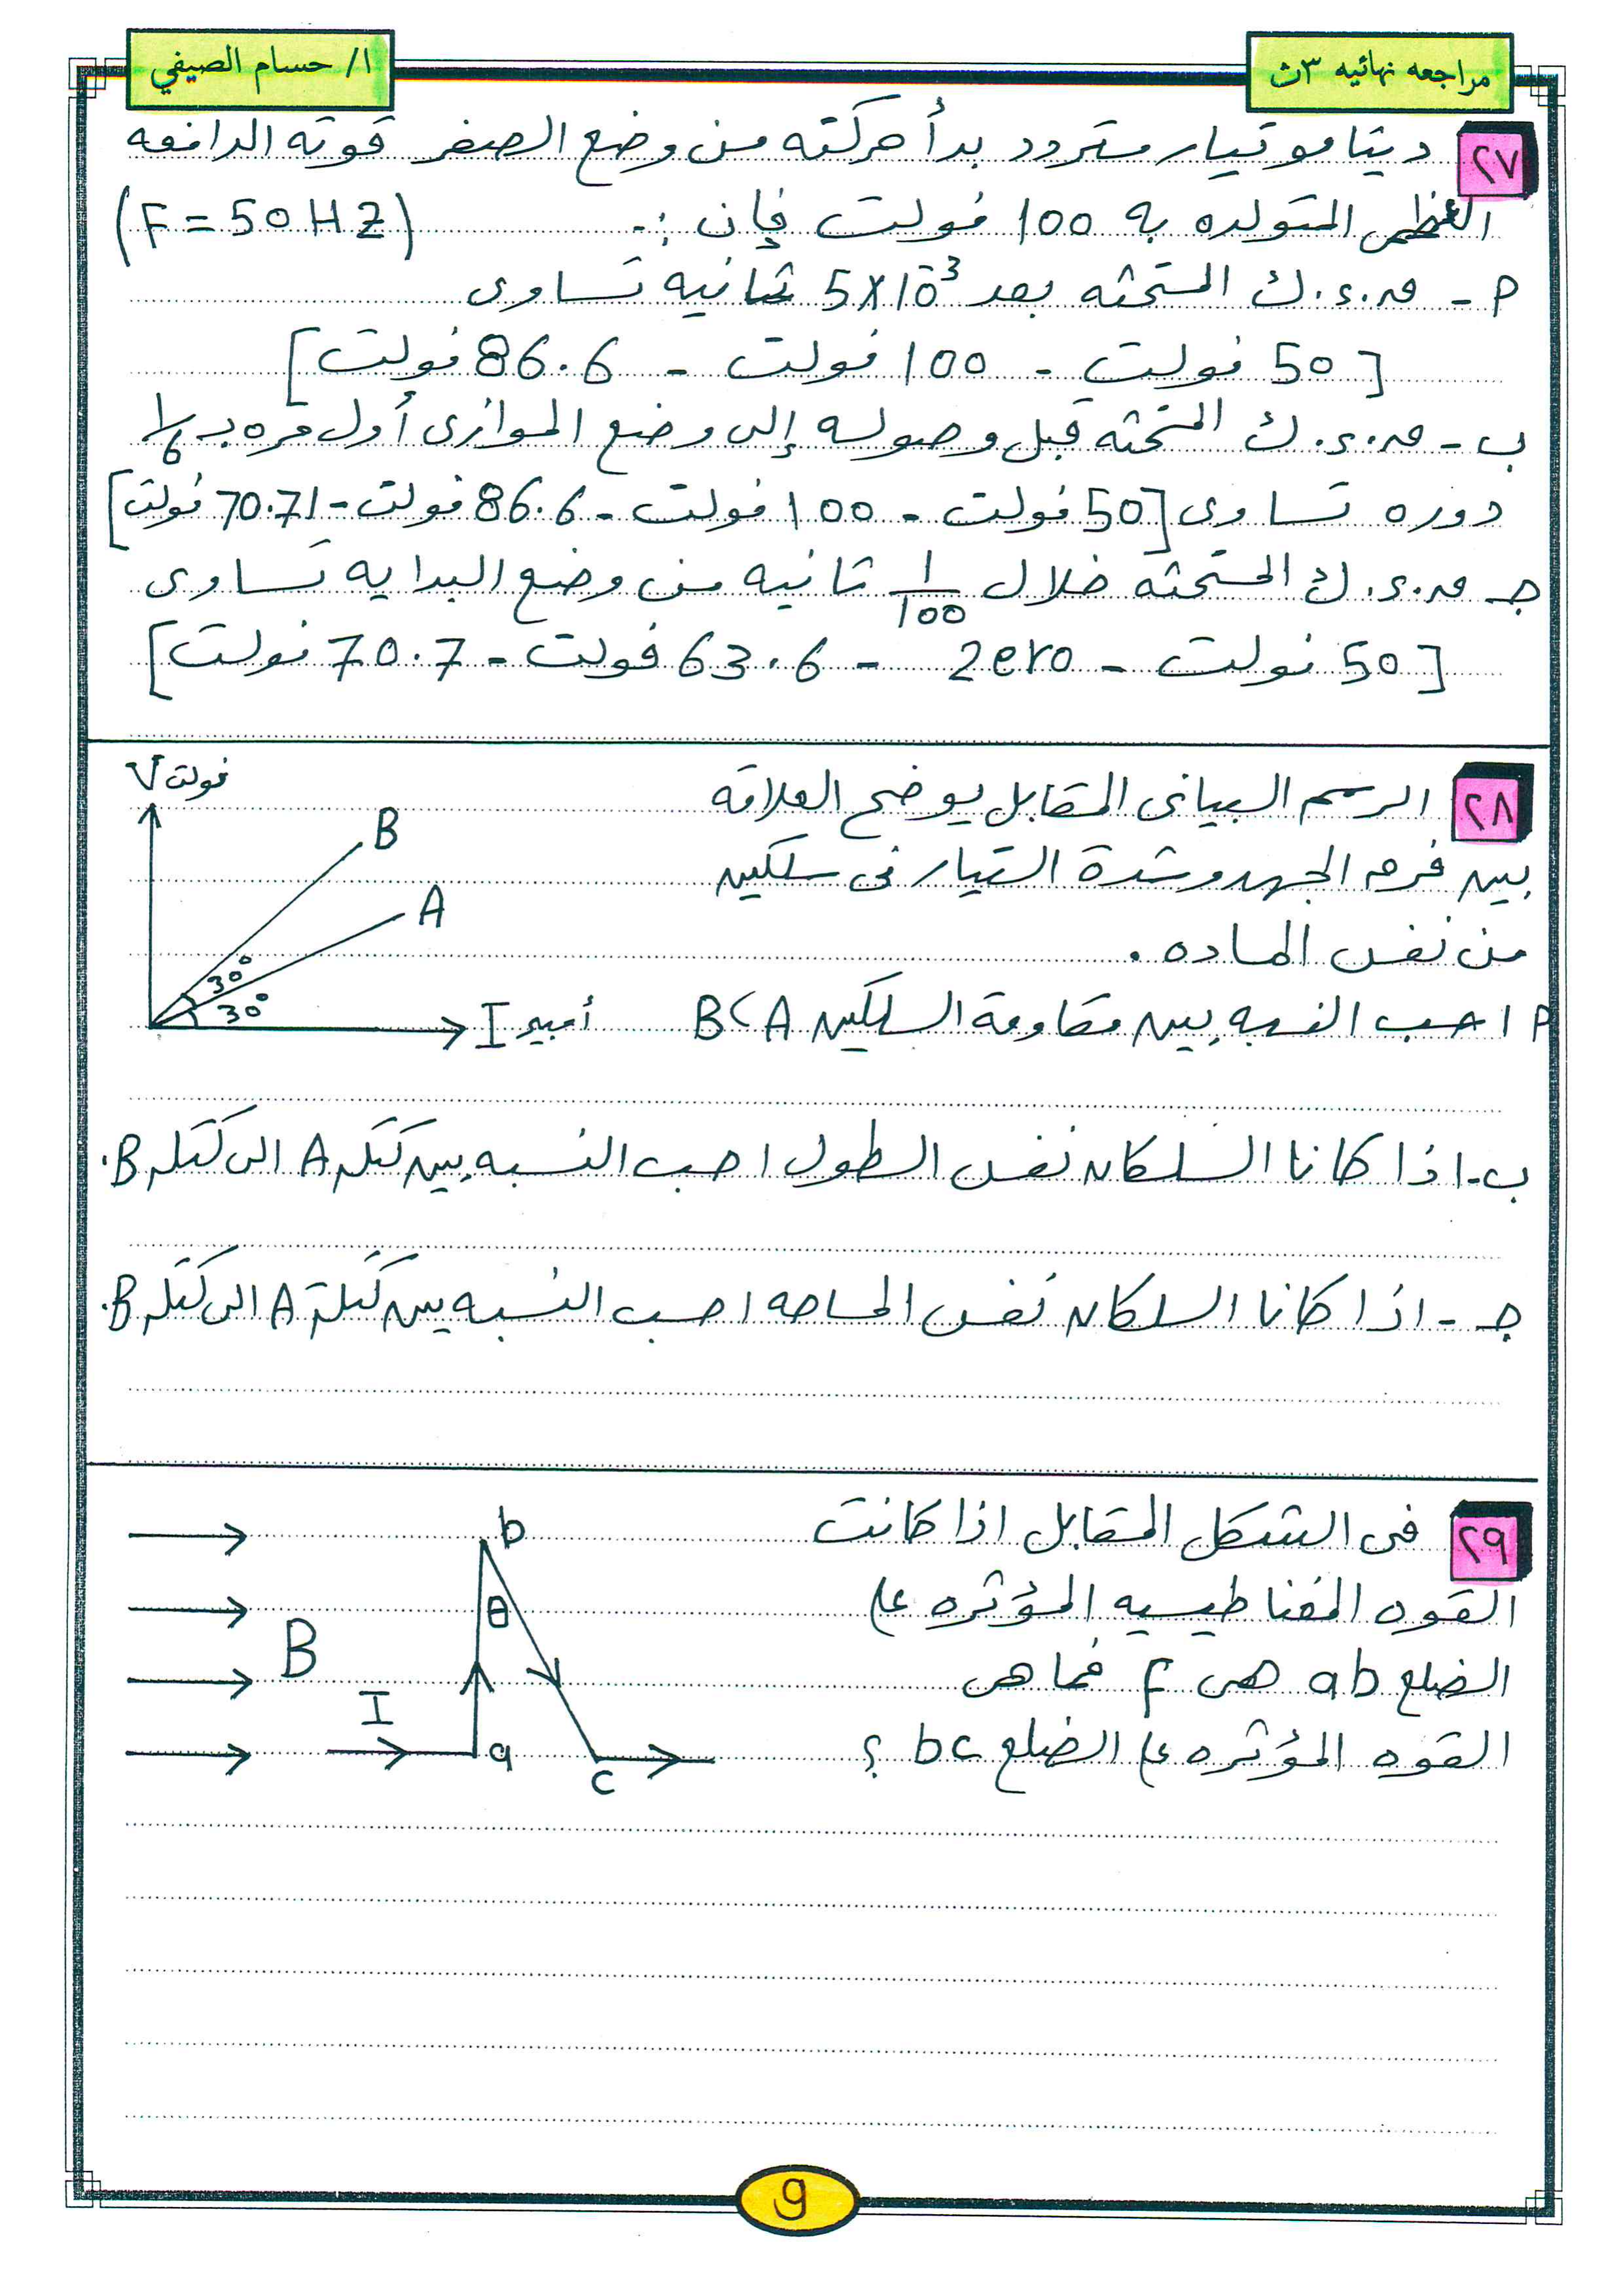 مراجعه نهائيه ٣ث
ا/ حسام الصيفي
٢٧ دينامو تيار متردد بدأ حركته من وضع الصفر قوته الدافعه
العظمى المتولده به 100 فولت فإن :- (F = 50 HZ)
P - ق.د.ك المستحثه بعد 5X10⁻³ ثانيه تساوى
[50 فولت - 100 فولت - 86.6 فولت]
ب - ق.د.ك المستحثه قبل وصوله إلى وضع الموازى أول مره بـ 1/6
دوره تساوى [50 فولت - 100 فولت - 86.6 فولت - 70.71 فولت]
جـ ق.د.ك المستحثه خلال 1/100 ثانيه من وضع البدايه تساوى
[50 فولت - zero - 63.6 فولت - 70.7 فولت]
٢٨ الرسم البيانى المقابل يوضح العلاقه
بين فرق الجهد وشدة التيار فى سلكين
من نفس الماده .
P احسب النسبه بين مقاومة السلكين B , A
ب - اذا كانا السلكان نفس الطول احسب النسبه بين كتله A الى كتله B.
جـ - اذا كانا السلكان نفس المساحه احسب النسبه بين كتلة A الى كتله B.
V فولت
B
A
30°
30°
I أمبير
٢٩ فى الشكل المقابل اذا كانت
القوه المغناطيسيه المؤثره على
الضلع ab هى F فما هى
القوه المؤثره على الضلع bc ؟
b
θ
B
I
a
c
9